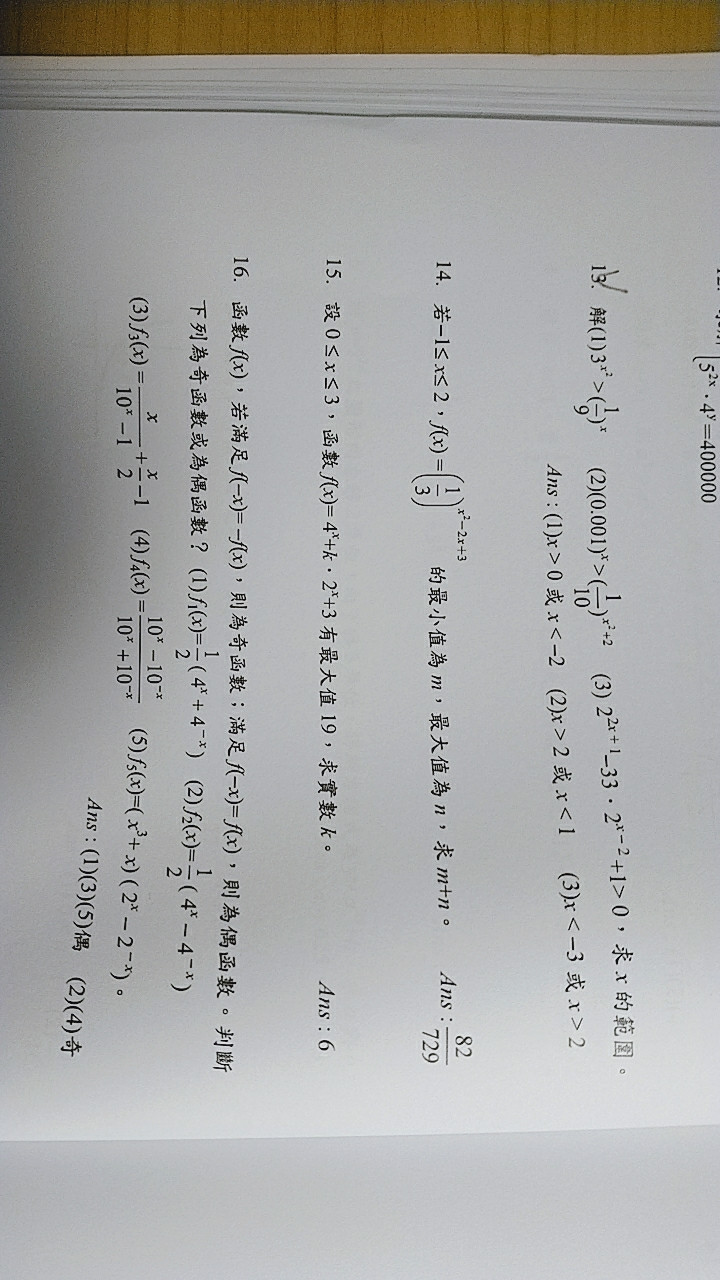 5^{2x}·4^y=400000
13. 解(1)3^{x^2}>(1/9)^x (2)(0.001)^x>(1/10)^{x^2+2} (3) 2^{2x+1}–33·2^{x–2}+1>0，求 x 的範圍。
Ans：(1)x>0 或 x<–2 (2)x>2 或 x<1 (3)x<–3 或 x>2
14. 若–1≤x≤2，f(x)=(1/3)^{x^2–2x+3} 的最小值為 m，最大值為 n，求 m+n。 Ans：82/729
15. 設 0≤x≤3，函數 f(x)=4^x+k·2^x+3 有最大值 19，求實數 k。 Ans：6
16. 函數 f(x)，若滿足 f(–x)=–f(x)，則為奇函數；滿足 f(–x)=f(x)，則為偶函數。判斷
下列為奇函數或為偶函數？(1)f₁(x)=1/2(4^x+4^{–x}) (2)f₂(x)=1/2(4^x–4^{–x})
(3)f₃(x)=x/(10^x–1)+x/2–1 (4)f₄(x)=(10^x–10^{–x})/(10^x+10^{–x}) (5)f₅(x)=(x^3+x)(2^x–2^{–x})。
Ans：(1)(3)(5)偶 (2)(4)奇